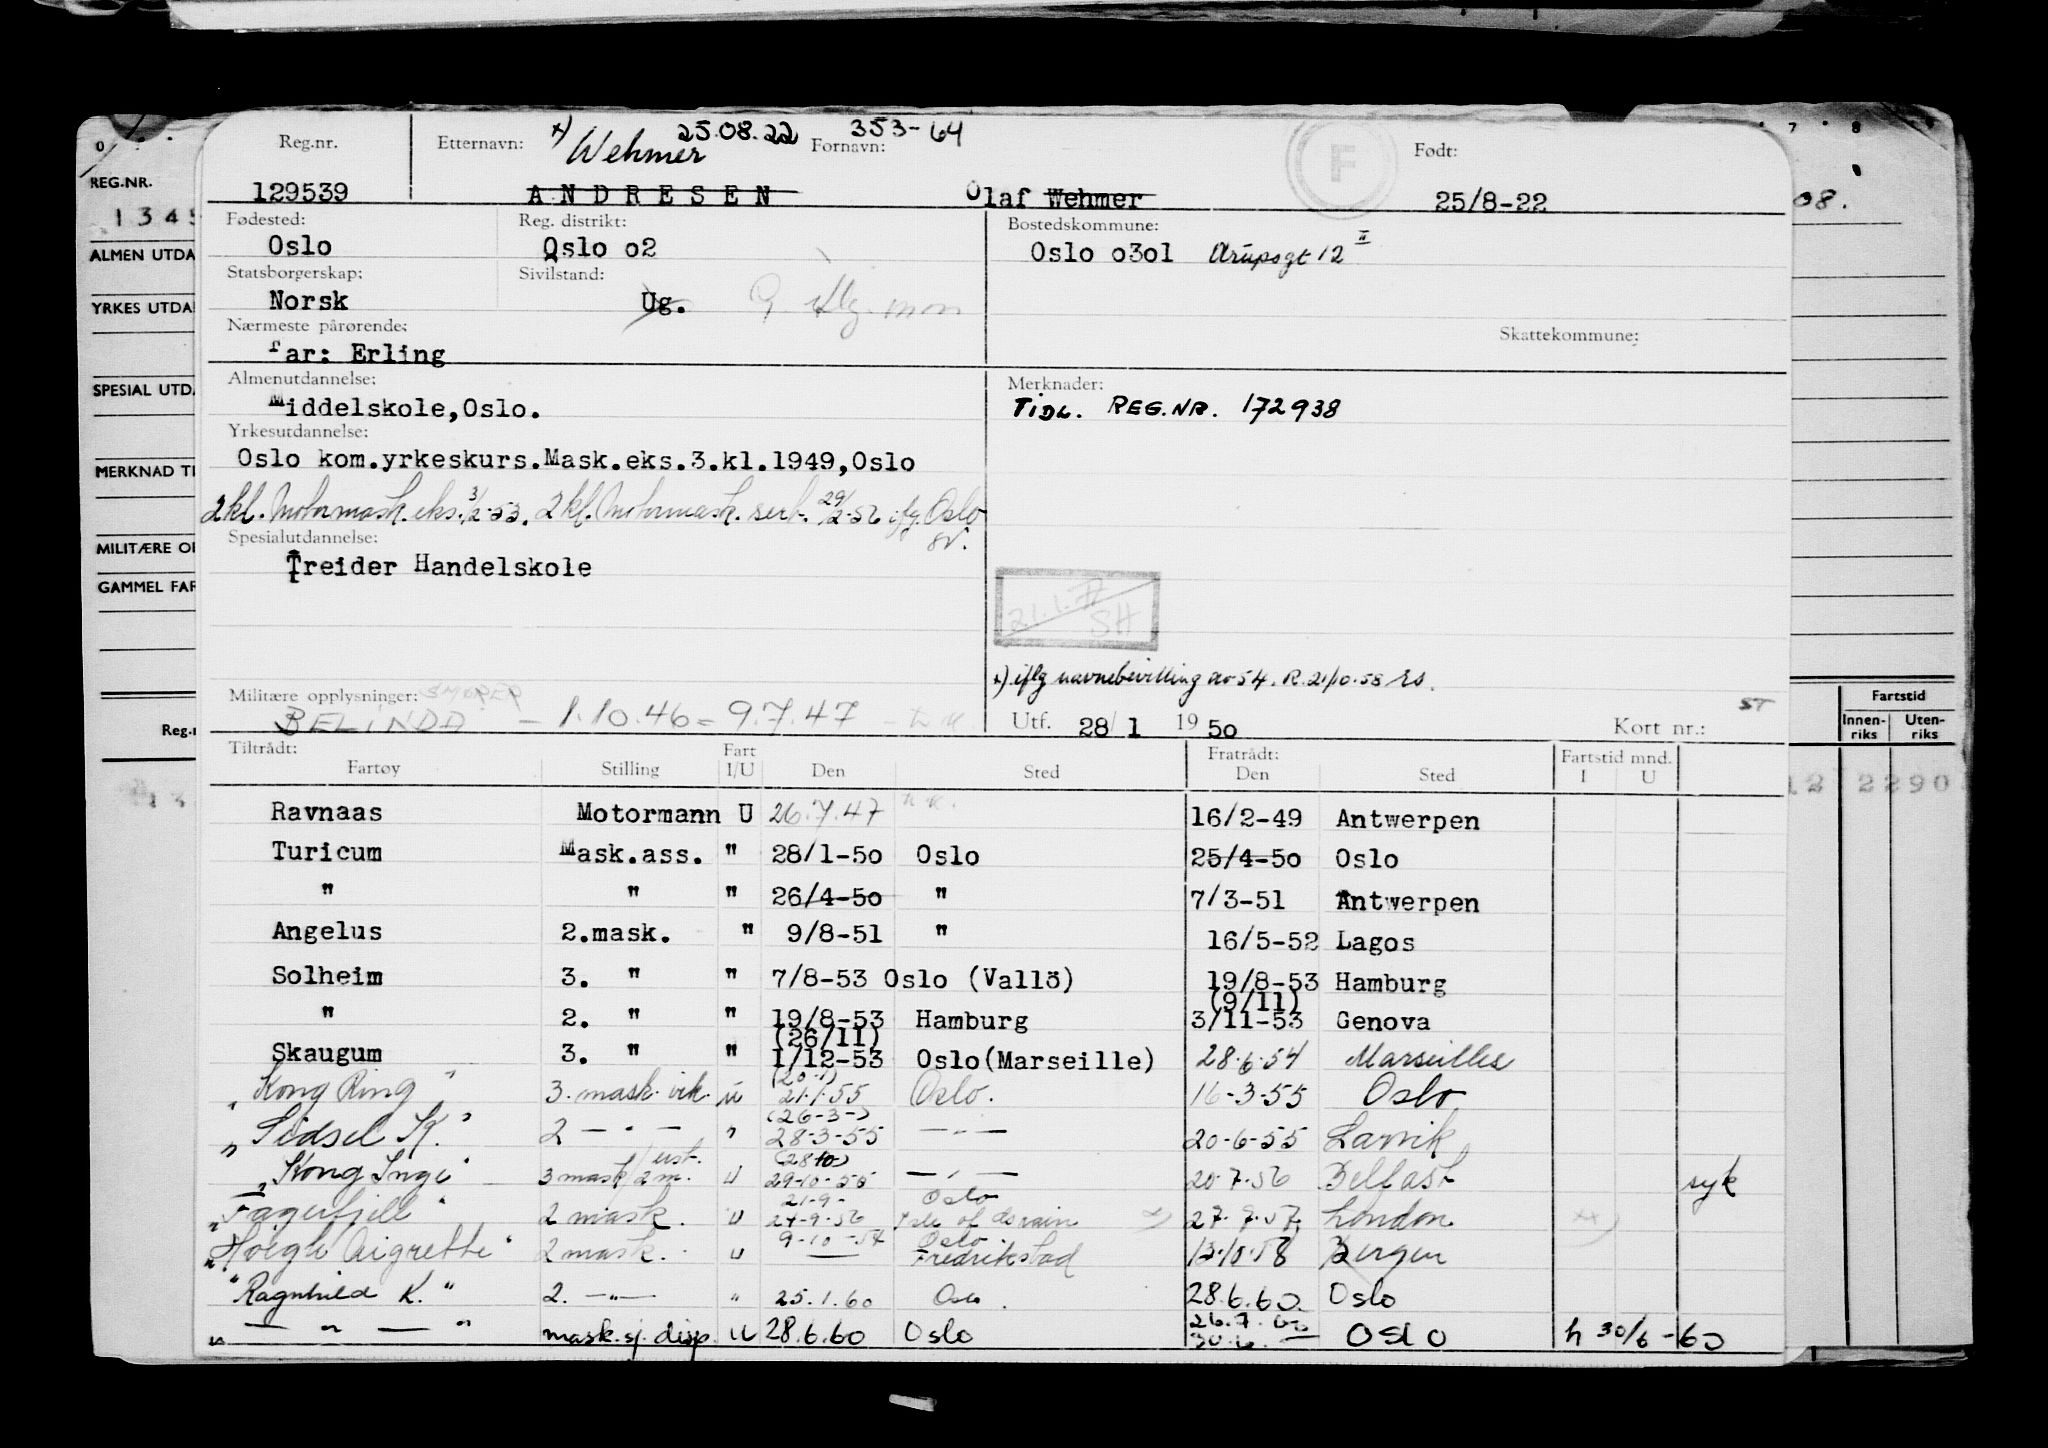 25.08.22 353-64
Reg.nr. Etternavn: x) Wehmer Fornavn: F Født:
129539 ANDRESEN Olaf Wehmer 25/8-22
Fødested: Reg. distrikt: Bostedskommune:
Oslo Oslo o2 Oslo o3ol Arupsgt 12 II
Statsborgerskap: Sivilstand:
Norsk Ug. G. iflg. mønstr
Nærmeste pårørende: Skattekommune:
far: Erling
Almenutdannelse: Merknader:
Middelskole,Oslo. TIDL. REG.NR. 172938
Yrkesutdannelse:
Oslo kom.yrkeskurs.Mask.eks.3.kl.1949,Oslo
2kl. Motormask. eks. 3/2-53. 2kl. Motormask. sert. 29/2-56 ifg. Oslo
Spesialutdannelse:
Treider Handelskole
21.1.77
SH
x) iflg navnebevilling av 54. R. 21/10.58
Militære opplysninger: SMØRER
BELINDA - 1.10.46 = 9.7.47
Utf. 28/1 1950 Kort nr.: ST
Tiltrådt: Fart Fratrådt: Fartstid mnd.
Fartøy Stilling I/U Den Sted Den Sted I U
Ravnaas Motormann U 26.7.47 16/2-49 Antwerpen
Turicum Mask.ass. " 28/1-50 Oslo 25/4-50 Oslo
" " " 26/4-50 " 7/3-51 Antwerpen
Angelus 2.mask. " 9/8-51 " 16/5-52 Lagos
Solheim 3. " " 7/8-53 Oslo (Vallö) 19/8-53 Hamburg
(9/11)
" 2. " " 19/8-53 Hamburg 3/11-53 Genova
(26/11)
Skaugum 3. " " 1/12-53 Oslo(Marseille) 28.6.54 Marseilles
(20.1)
"Kong Ring" 3. mask. vik. u 21.1.55 Oslo. 16-3-55 Oslo
(26-3-)
"Sidsel K." 2 — " — " 28-3-55 — " — 20-6-55 Larvik
(28/10)
"Kong Inge" 3 mask/2 m. u 29-10-55 — " — 20.7.56 Belfast syk
21-9- Oslo
"Fagerfjell" 2 mask. u 24-9-56 Isle of Grain 27.7.57 London
9-10-57 Oslo
"Høegh Aigrette" 2 mask. u — Fredrikstad 13.10.58 Bergen
"Ragnhild K." 2. — " — " 25.1.60 Oslo. 28.6.60. Oslo
26.7.60
" — " — " mask.sj. disp. U 28.6.60 Oslo 30.6. — OSLO h 30/6-60
REG.NR.
1345
ALMEN UTDA
YRKES UTDA
SPESIAL UTDA
MERKNAD TI
MILITÆRE OP
GAMMEL FAR
Reg.n
7 8
08.
Fartstid
Innen-riks Uten-riks
12 2290